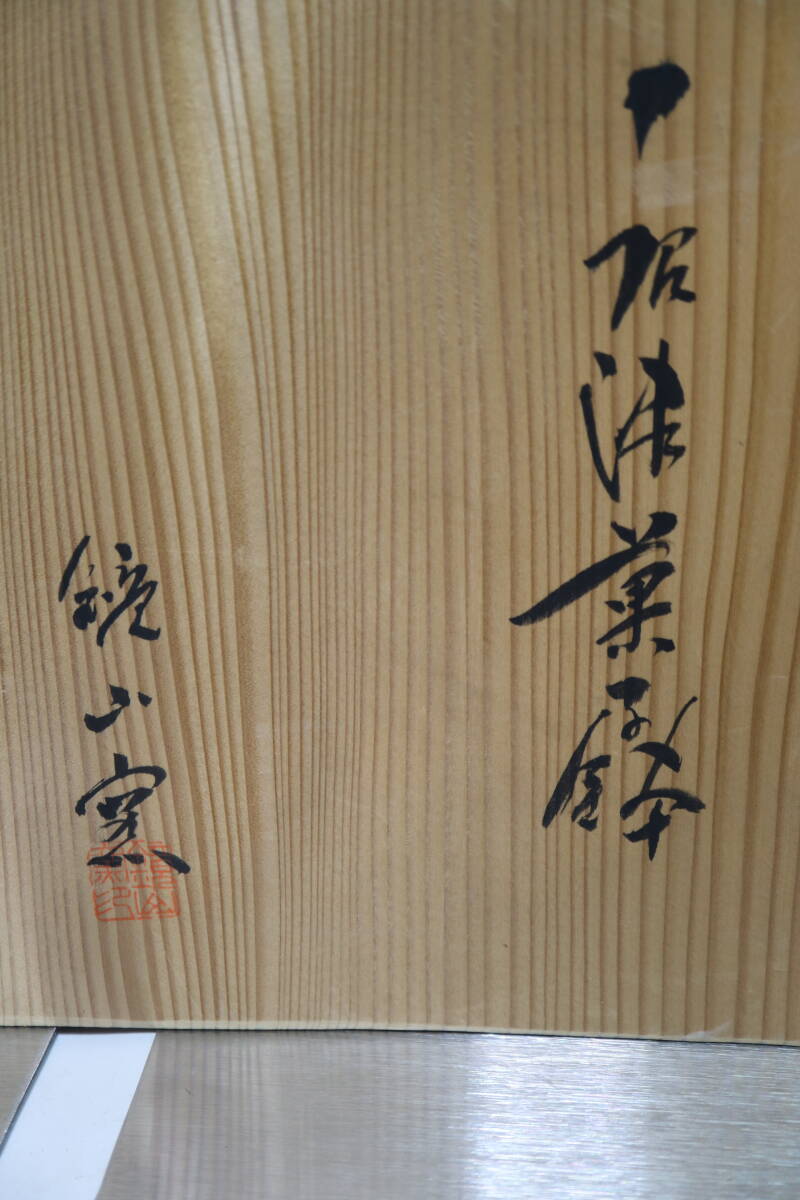 唐津菓子鉢
鏡山窯